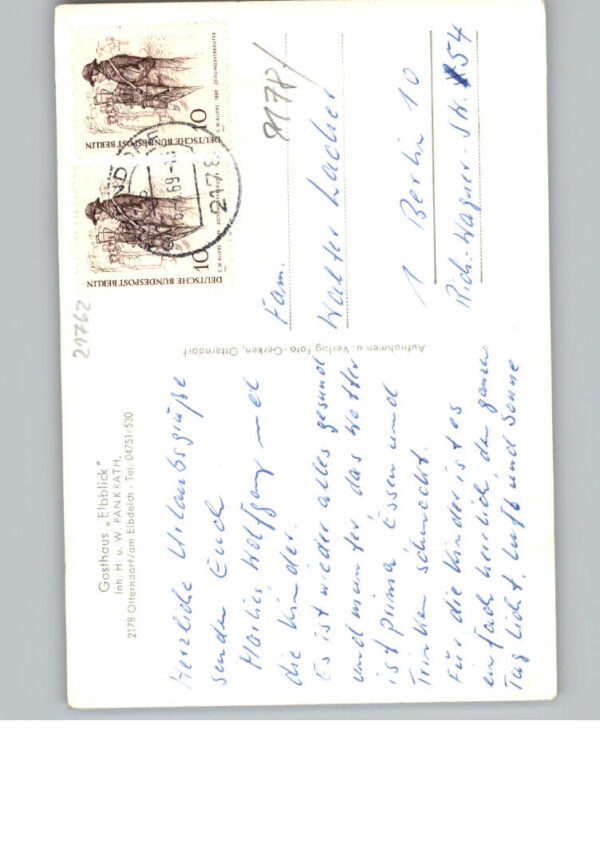 Gasthaus „Elbblick"
Inh. H. u. W. PANKRATH,
2178 Otterndorf/am Elbdeich · Tel. 04751/530
Herzliche Urlaubsgrüße
senden Euch
Wolfgang und
die Kinder.
Es ist wieder alles gesund
und munter, das Wetter
ist prima Essen und
Trinken schmeckt.
Für die Kinder ist es
einfach herrlich den ganzen
Tag Licht, Luft und Sonne
Aufnahmen u. Verlag Foto-Gerken, Otterndorf
21762
DEUTSCHE BUNDESPOST BERLIN
10
C. W. ALLERS 1889 ZEITUNGSVERKÄUFER
DEUTSCHE BUNDESPOST BERLIN
10
2178
69
Fam.
Walter Lacher
1 Berlin 10
Rich.-Wagner-Str. 54